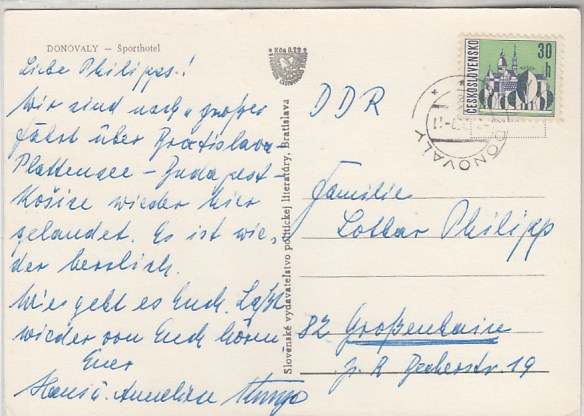 DONOVALY — Športhotel
Liebe Philipps!
Wir sind nach großer
Fahrt über Bratislava
Plattensee - Budapest -
Košice wieder hier
gelandet. Es ist wie-
der herrlich.
Wie geht es Euch. Laßt
wieder von Euch hören
Euer
Hans u. Annelies
Kčs 0,20
Slovenské vydavateľstvo politickej literatúry, Bratislava
ČESKOSLOVENSKO
30 h
DONOVALY
DDR
Familie
Lothar Philipp
82 Großenhain
J. R. Becherstr. 19